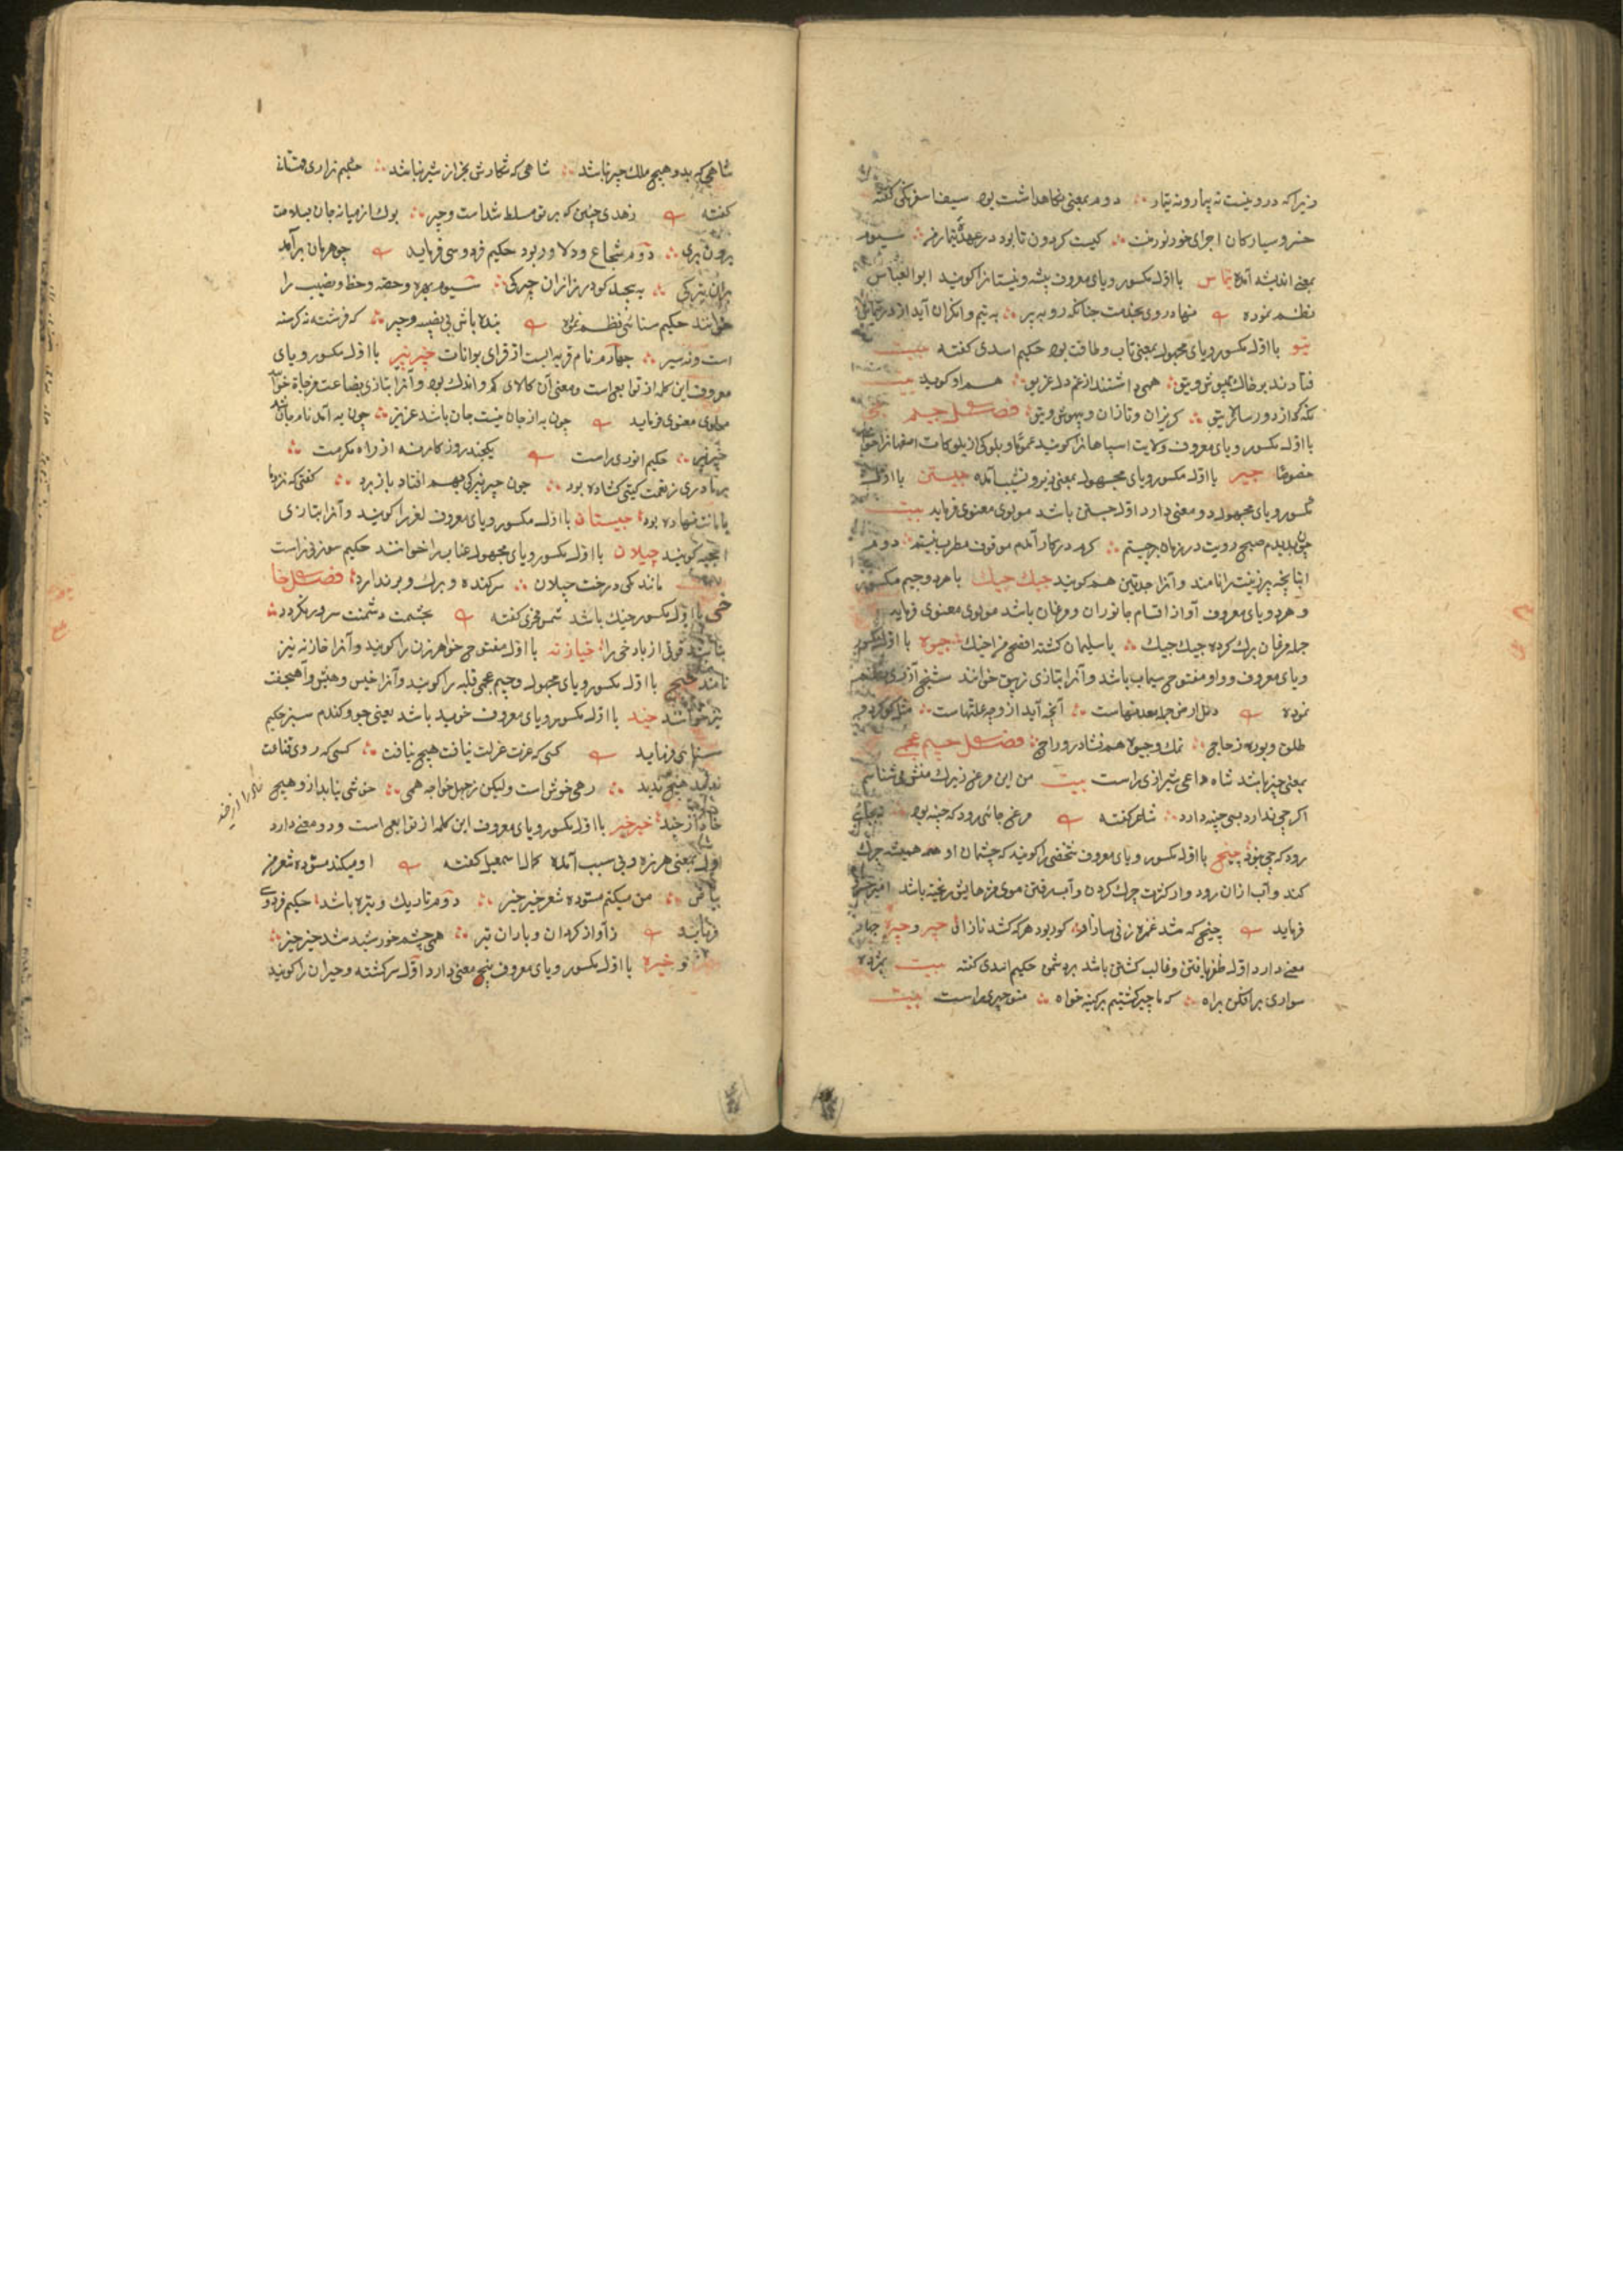 زیرا که درو نیست نه پیمار و نه تیمار ؞ دوم بمعنی نکاهداشت بود سیف اسفرنکی کفته
خسرو سیارکان اجرای خود نورخت ؞ کیست کردون تا بود در عهدهٔ تیمار من ؞ سیوم
بمعنی اندیشه آمده تیماس با اول مکسور و یای معروف بیشه و نیستانرا کویند ابوالعباس
نظم نموده نهاد روی بخدمت چنانکه روبه پیر ؞ به تیم وانکران آید از در تیماس
تیو با اول مکسور و یای مجهول بمعنی تاب و طاقت بود حکیم اسدی کفته بیت
فتادند بر خاک بیهوش و تیو ؞ همی داشتند از غم دل غریو ؞ هم او کوید بیت
کریزان و تازان و بیهوش و تیو ؞ فصل جیم جی
با اول مکسور و یای معروف ولایت اسپاهانرا کویند عموما و بلوکی از بلوکات اصفهانرا خوانند
خصوصا جیر با اول مکسور و یای مجهول بمعنی زیر و نشیب آمده جیستن با اول
مکسور و یای مجهول دو معنی دارد اول جستن باشد مولوی معنوی فرماید بیت
چون بدیدم صبح رویت در زمان برجیستم ؞ کرم در کار آمدم موقوف مطرب نیستم ؞ دوم
را نامند و آنرا جدتین هم کویند جیک جیک با هر دو جیم مکسور
و هر دو یای معروف آواز اقسام جانوران و مرغان باشد مولوی معنوی فرماید
جمله مرغان ترک کرده جیک جیک ؞ با سلیمان کشته افصح من اخیک ؞ جیوه با اول مکسور
و یای معروف و واو مفتوح سیماب باشد و آنرا بتازی زیبق خوانند شیخ آذری نظم
نموده آنچه آید از وجه علتهاست ؞ مثل کوکرد و
طلق و بوره و زجاج ؞ نمک و جیوه هم نشادر و راج ؞ فصل جیم عجمی
بمعنی چیز باشد شاه داعی شیرازی راست بیت من این مرغ زیرک منش می شناسم
اکر چی ندارد بسی چینه دارد ؞ شاعر کفته مرغ جائی رود که چینه بود ؞ نه بجائی
رود که چی نبود ؞ چیخ با اول مکسور و یای معروف شخصی را کویند که چشمان او همه همیشه چرک
کند و آب ازان رود و از کثرت چرک کردن و آب رفتن موی مژهایش ریخته باشد امیر خسرو
فرماید چیخی که شد غمزه زنی ساز او ؞ کور بود هر که کشد ناز او ؞ چیر و چیره چهار
معنی دارد اول ظفر یافتن و غالب کشتن باشد بر دشمن حکیم اسدی کفته بیت
سواری برافکن براه ؞ که ما چیر کشتیم بر کینه خواه ؞ منوچهری راست بیت
شاهی که بدو هیچ ملک چیر نباشد ؞ شاهی که شکارش بجز از شیر نباشد ؞ حکیم نزاری قهستانی
کفته زهدی چنین که بر تو مسلط شداست و چیر ؞ بوک از میانه جان بسلامت
برون بری ؞ دوم شجاع و دلاور بود حکیم فردوسی فرماید چو هرمان برآمد
بران تیرکی ؞ به پیچید کودرز ازان چیرکی ؞ سیوم بهره و حصه و حظ و نصیب را
خوانند حکیم سنائی نظم نموده بنده باش بی نصیبه و چیر ؞ که فرشته نه کرسنه
است و نه سیر ؞ چهارم نام قریه ایست از قرای بوانات چیز نیز با اول مکسور و یای
معروف این کلمه از توابع است و معنی آن کالای کم و اندک بود و آنرا بتازی بضاعت مزجاة خوانند
مولوی معنوی فرماید چون به از جان نیست جان باشد عزیز ؞ چون به آمد نام جان شد
چیز نیز ؞ حکیم انوری راست یکچند روز کامرنه از راه مکرمت ؞
؞ چون چیز نیزکی بهم افتاد باز برد ؞ کفتی که نزد ما
بامانت نهاده بود ؞ چیستان با اول مکسور و یای معروف لغز را کویند و آنرا بتازی
کویند چیلان با اول مکسور و یای مجهول عناب را خوانند حکیم سوزنی راست
مانند کی درخت چیلان ؞ سرکنده و برک و بر ندارد ؞ فصل خا
خی با اول مکسور خیک باشد شمس فخری کفته بچشمت دشمنت سرور نکردد ؞
نباشد قوتی از باد خی را ؞ خیازنه با اول مفتوح خواهر زن را کویند و آنرا خازنه نیز
نامند خیج با اول مکسور و یای مجهول و جیم عجمی قلبه را کویند و آنرا خیس و هیش و آهنجفت
نیز خوانند خید با اول مکسور و یای معروف خوید باشد یعنی جو و کندم سبز حکیم
سنائی فرماید کسی که عزت عزلت نیافت هیچ نیافت ؞ کسی که روی قناعت
ندید هیچ ندید ؞ رهی خوش است ولیکن ز جهل خواجه همی ؞ خوشی نیابد ازو هیچ
خید ؞ خیر خیر با اول مکسور و یای معروف این کلمه از توابع است و دو معنی دارد
اول بمعنی هرزه و بی سبب آمده کمال اسمعیل کفته او میکند ستوده شعر من
بیاض ؞ من میکنم مسوده شعر خیر خیر ؞ دوم تاریک و تیره باشد حکیم فردوسی
فرماید ز آواز کردان و باران تیر ؞ همی چشم خورشید شد خیر خیر ؞
و خیره با اول مکسور و یای معروف پنج معنی دارد اول سرکشته و حیران را کویند